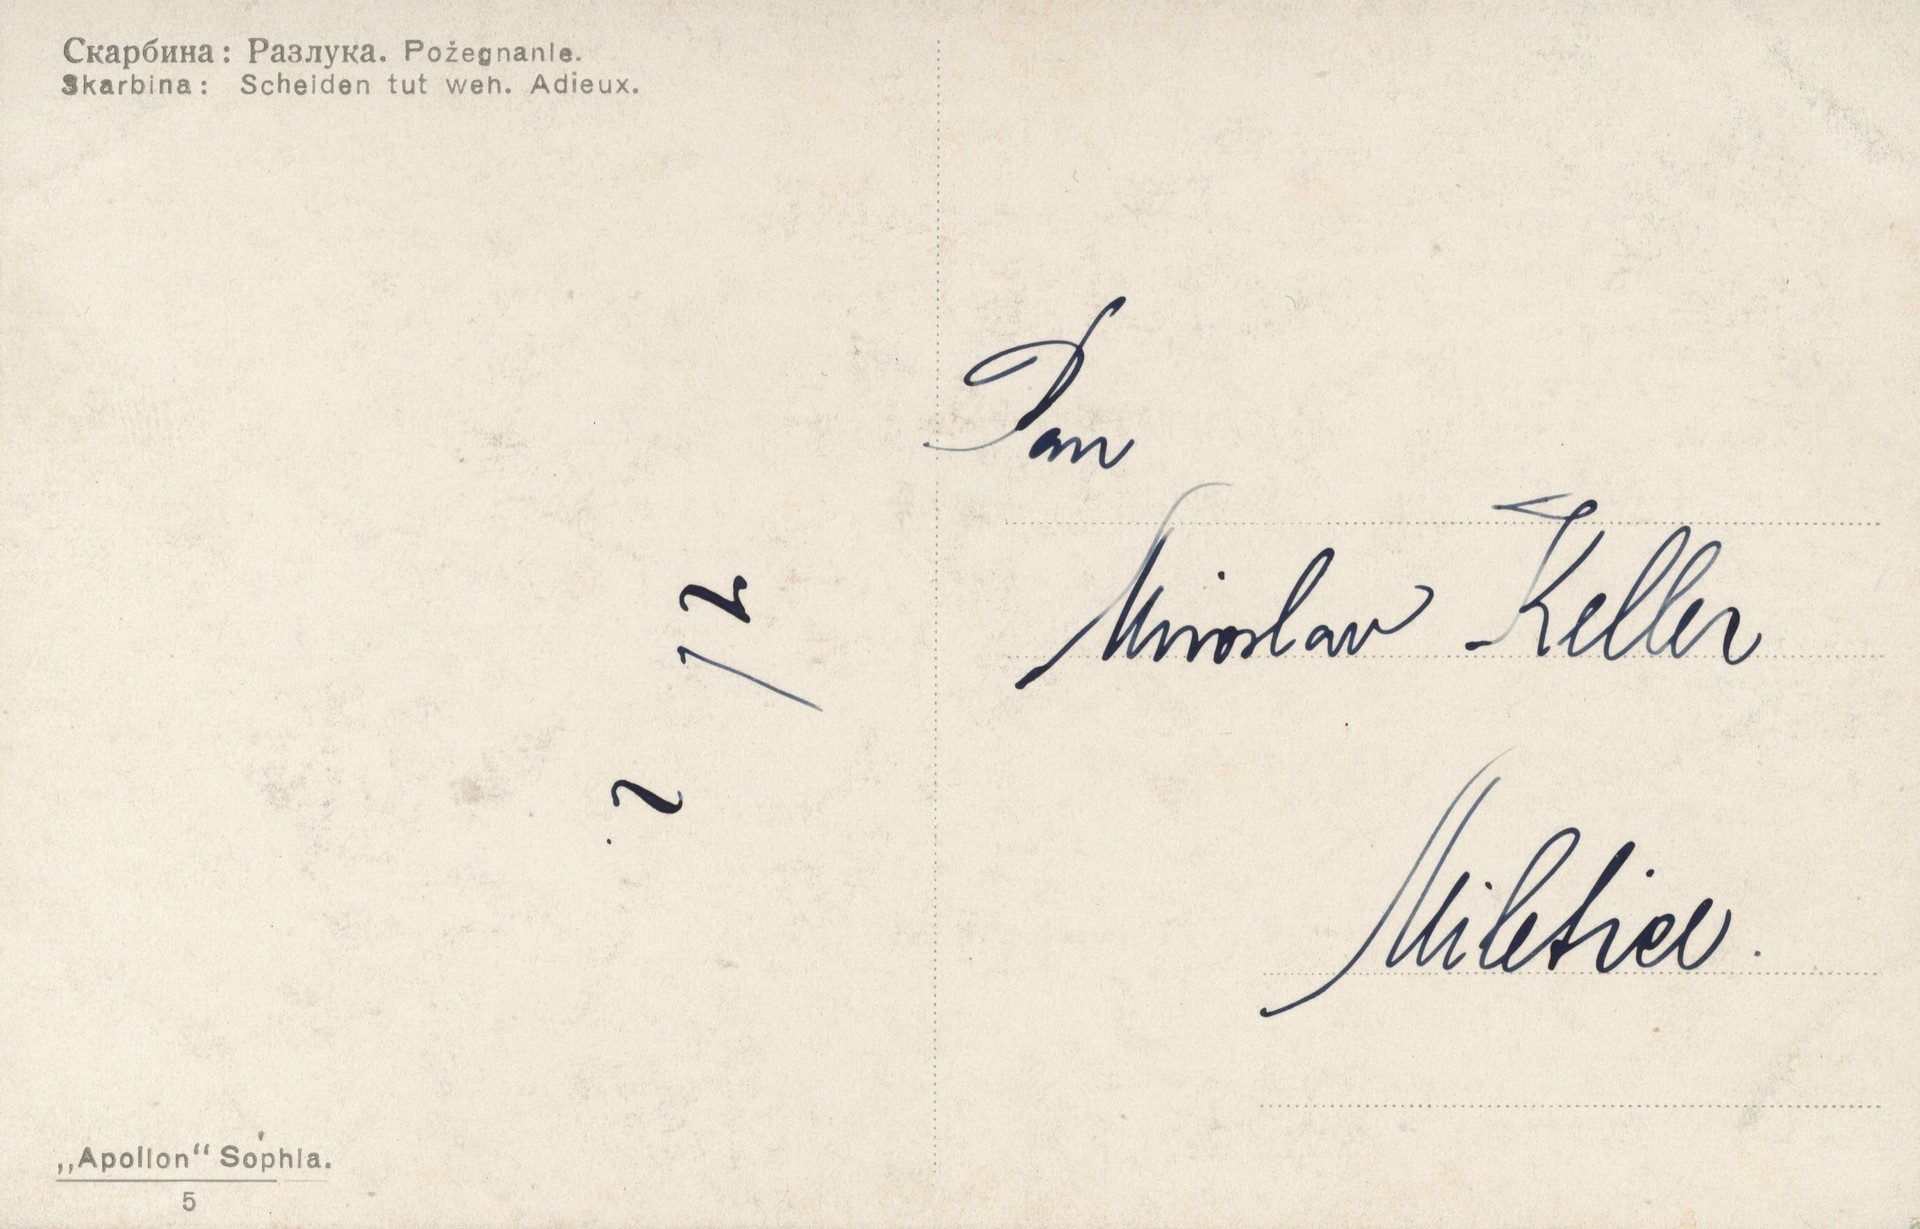 Скарбина: Разлука. Pożegnanie.
Skarbina: Scheiden tut weh. Adieux.
Pan
Miroslav Keller
„Apollon“ Sophia.
5